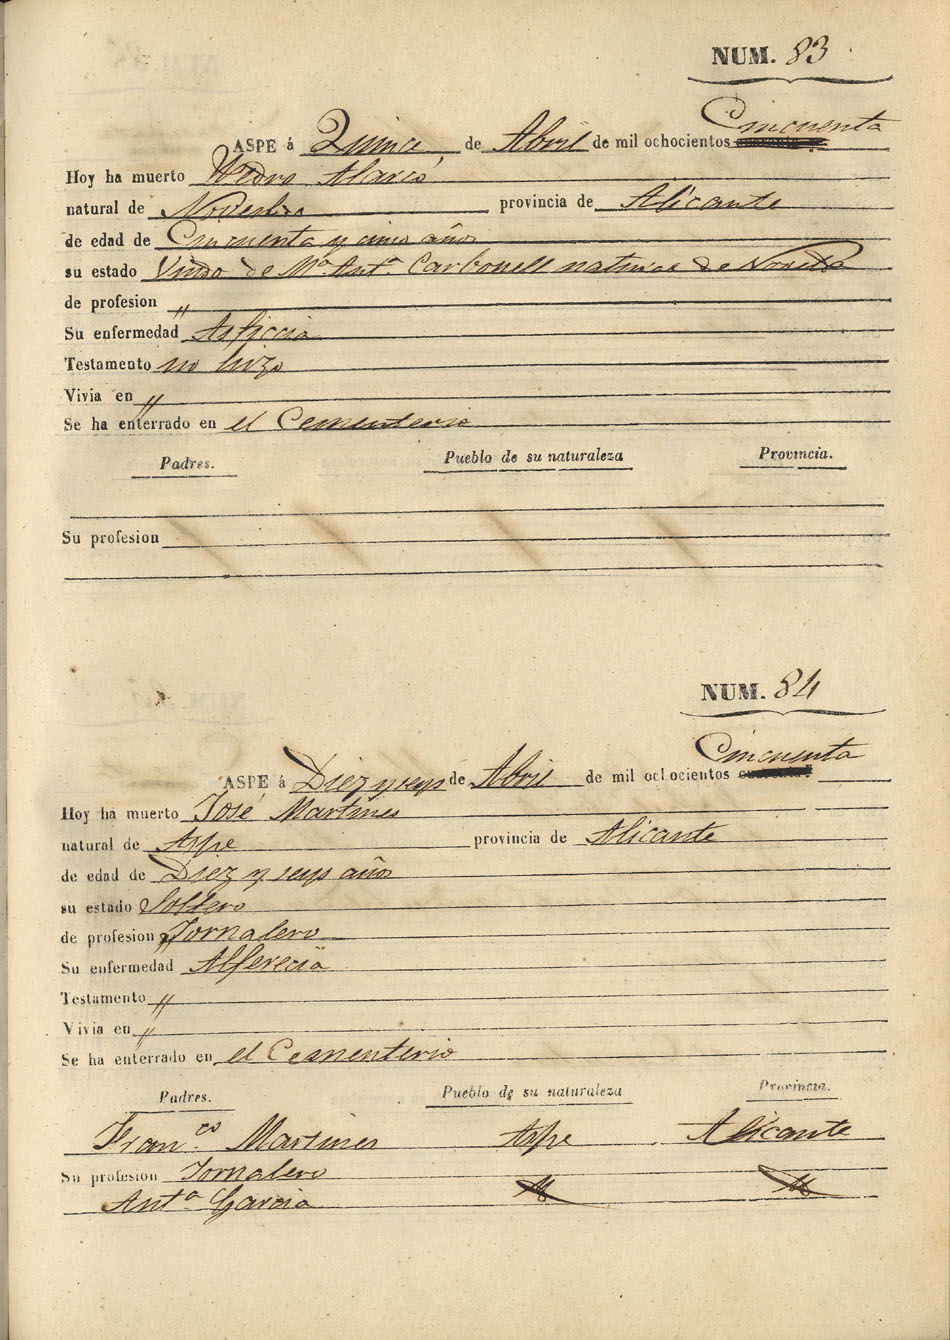 NUM. 83
Cincuenta
ASPE á Quince de Abril de mil ochocientos
Hoy ha muerto Pedro Alaxió
natural de Novelda provincia de Alicante
de edad de Cincuenta y cinco años
su estado Viudo de Mª Antª Carbonell natural de Novelda
de profesion "
Su enfermedad Asficcia
Testamento no hizo
Vivia en "
Se ha enterrado en el Cementerio
Padres. Pueblo de su naturaleza Provincia.
Su profesion
NUM. 84
Cincuenta
ASPE á Diez y seys de Abril de mil ochocientos
Hoy ha muerto José Martines
natural de Aspe provincia de Alicante
de edad de Diez y seys años
su estado Soltero
de profesion Jornalero
Su enfermedad Alferecia
Testamento "
Vivia en "
Se ha enterrado en el Cementerio
Padres. Pueblo de su naturaleza Provincia.
Fran.co Martines Aspe Alicante
Su profesion Jornalero
Antª Garcia